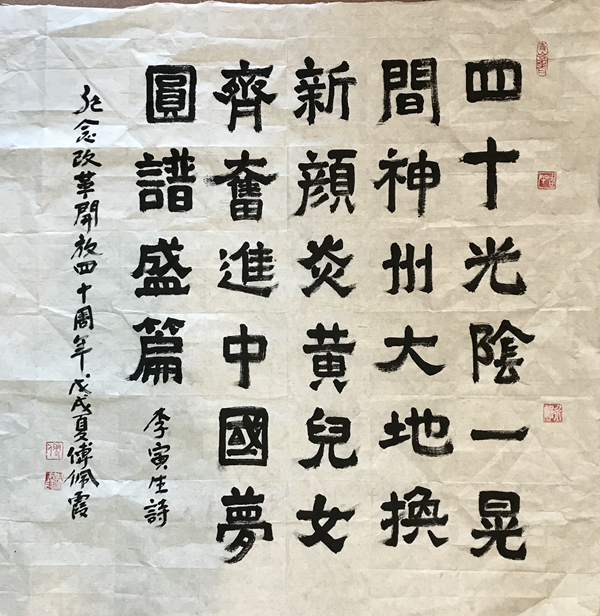 四十光陰一晃
間神州大地換
新顏炎黃兒女
齊奮進中國夢
圓譜盛篇
李寅生詩
紀念改革開放四十周年戊戌夏傅佩霞